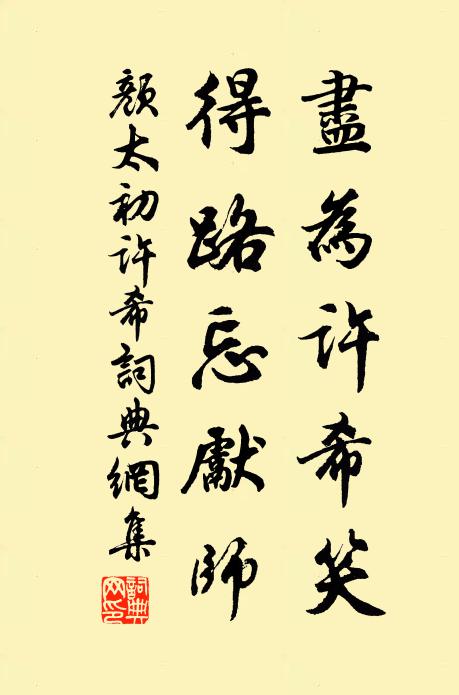 盡為許希笑
得路忘獻師
顏太初許希詞典網集
詞典網印